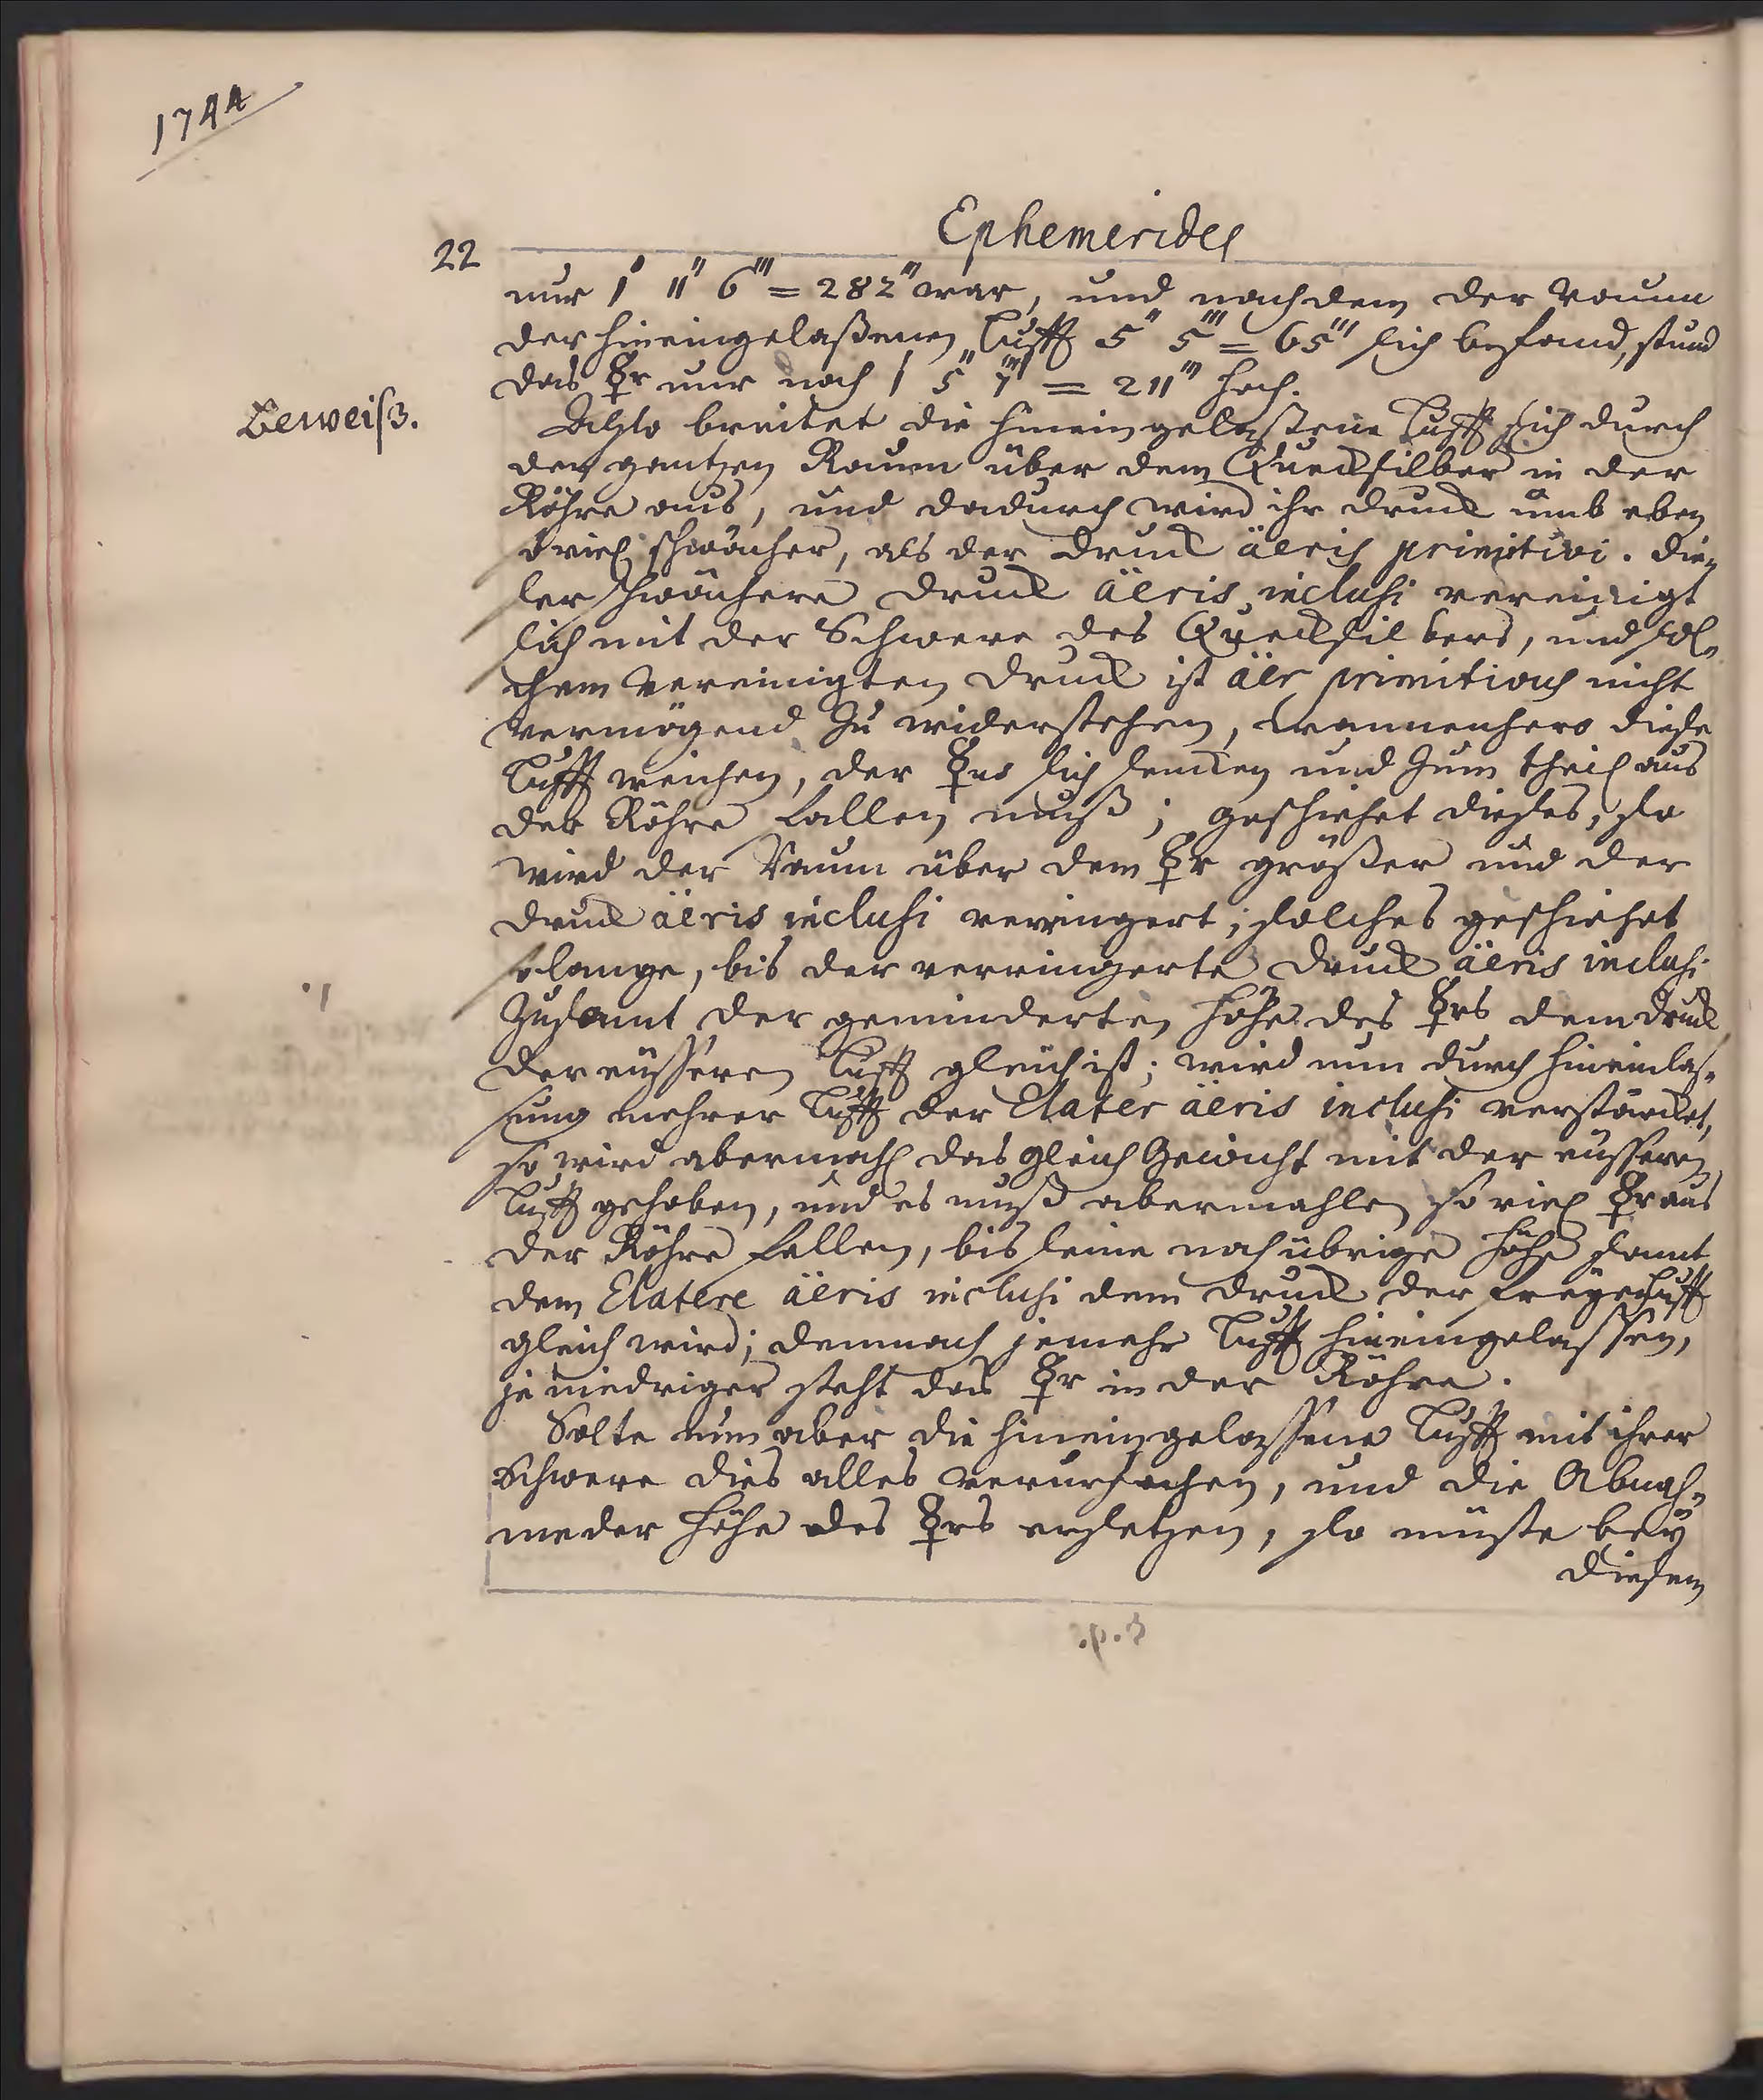 1744
Ephemerides
22
nur 1' 11'' 6''' = 282''' war, und nachdem der Raum
der hineingelaßenen Lufft 5'' 5''' = 65''' sich befand, stund
das ☿r nur noch 1 5'' 7''' = 211''' hoch.
Beweiß.
Alßo breitet die hineingelaßene Lufft sich durch
den gantzen Raum über dem Quecksilber in der
Röhre aus, und dadurch wird ihr Druck umb eben
so viel schwächer, als der Druck äeris primitivi. Die¬
ser schwächere Druck äeris inclusi vereinigt
sich mit der Schwere des Quecksilbers, und sol¬
chem vereinigten Druck ist äer primitivus nicht
vermögend zu widerstehen, dannenhero diese
Lufft weichen, der ☿us sich sencken und zum theil aus
der Röhre fallen muß; geschiehet dieses, so
wird der Raum über dem ☿r größer und der
Druck äeris inclusi verringert; solches geschiehet
solange, bis der verringerte Druck äeris inclusi
zusamt der geminderten Höhe des ☿rs dem Druck
der eüsseren Lufft gleich ist; wird nun durch hineinlas¬
sung mehrer Lufft der Elater äeris inclusi verstärcket,
so wird abermahl das gleich Gewicht mit der eusseren
Lufft gehoben, und es muß abermahlen so viel ☿r aus
der Röhre fallen, bis seine noch übrige Höhe samt
dem Elatere äeris inclusi dem Druck der freyen Lufft
gleich wird; demnach jemehr Lufft hineingelassen,
je niedriger steht das ☿r in der Röhre.
Solte nun aber die hineingelassene Lufft mit ihrer
Schwere dies alles verursachen, und die Abnah¬
me der Höhe des ☿rs ersetzen, so müste bey
diesem